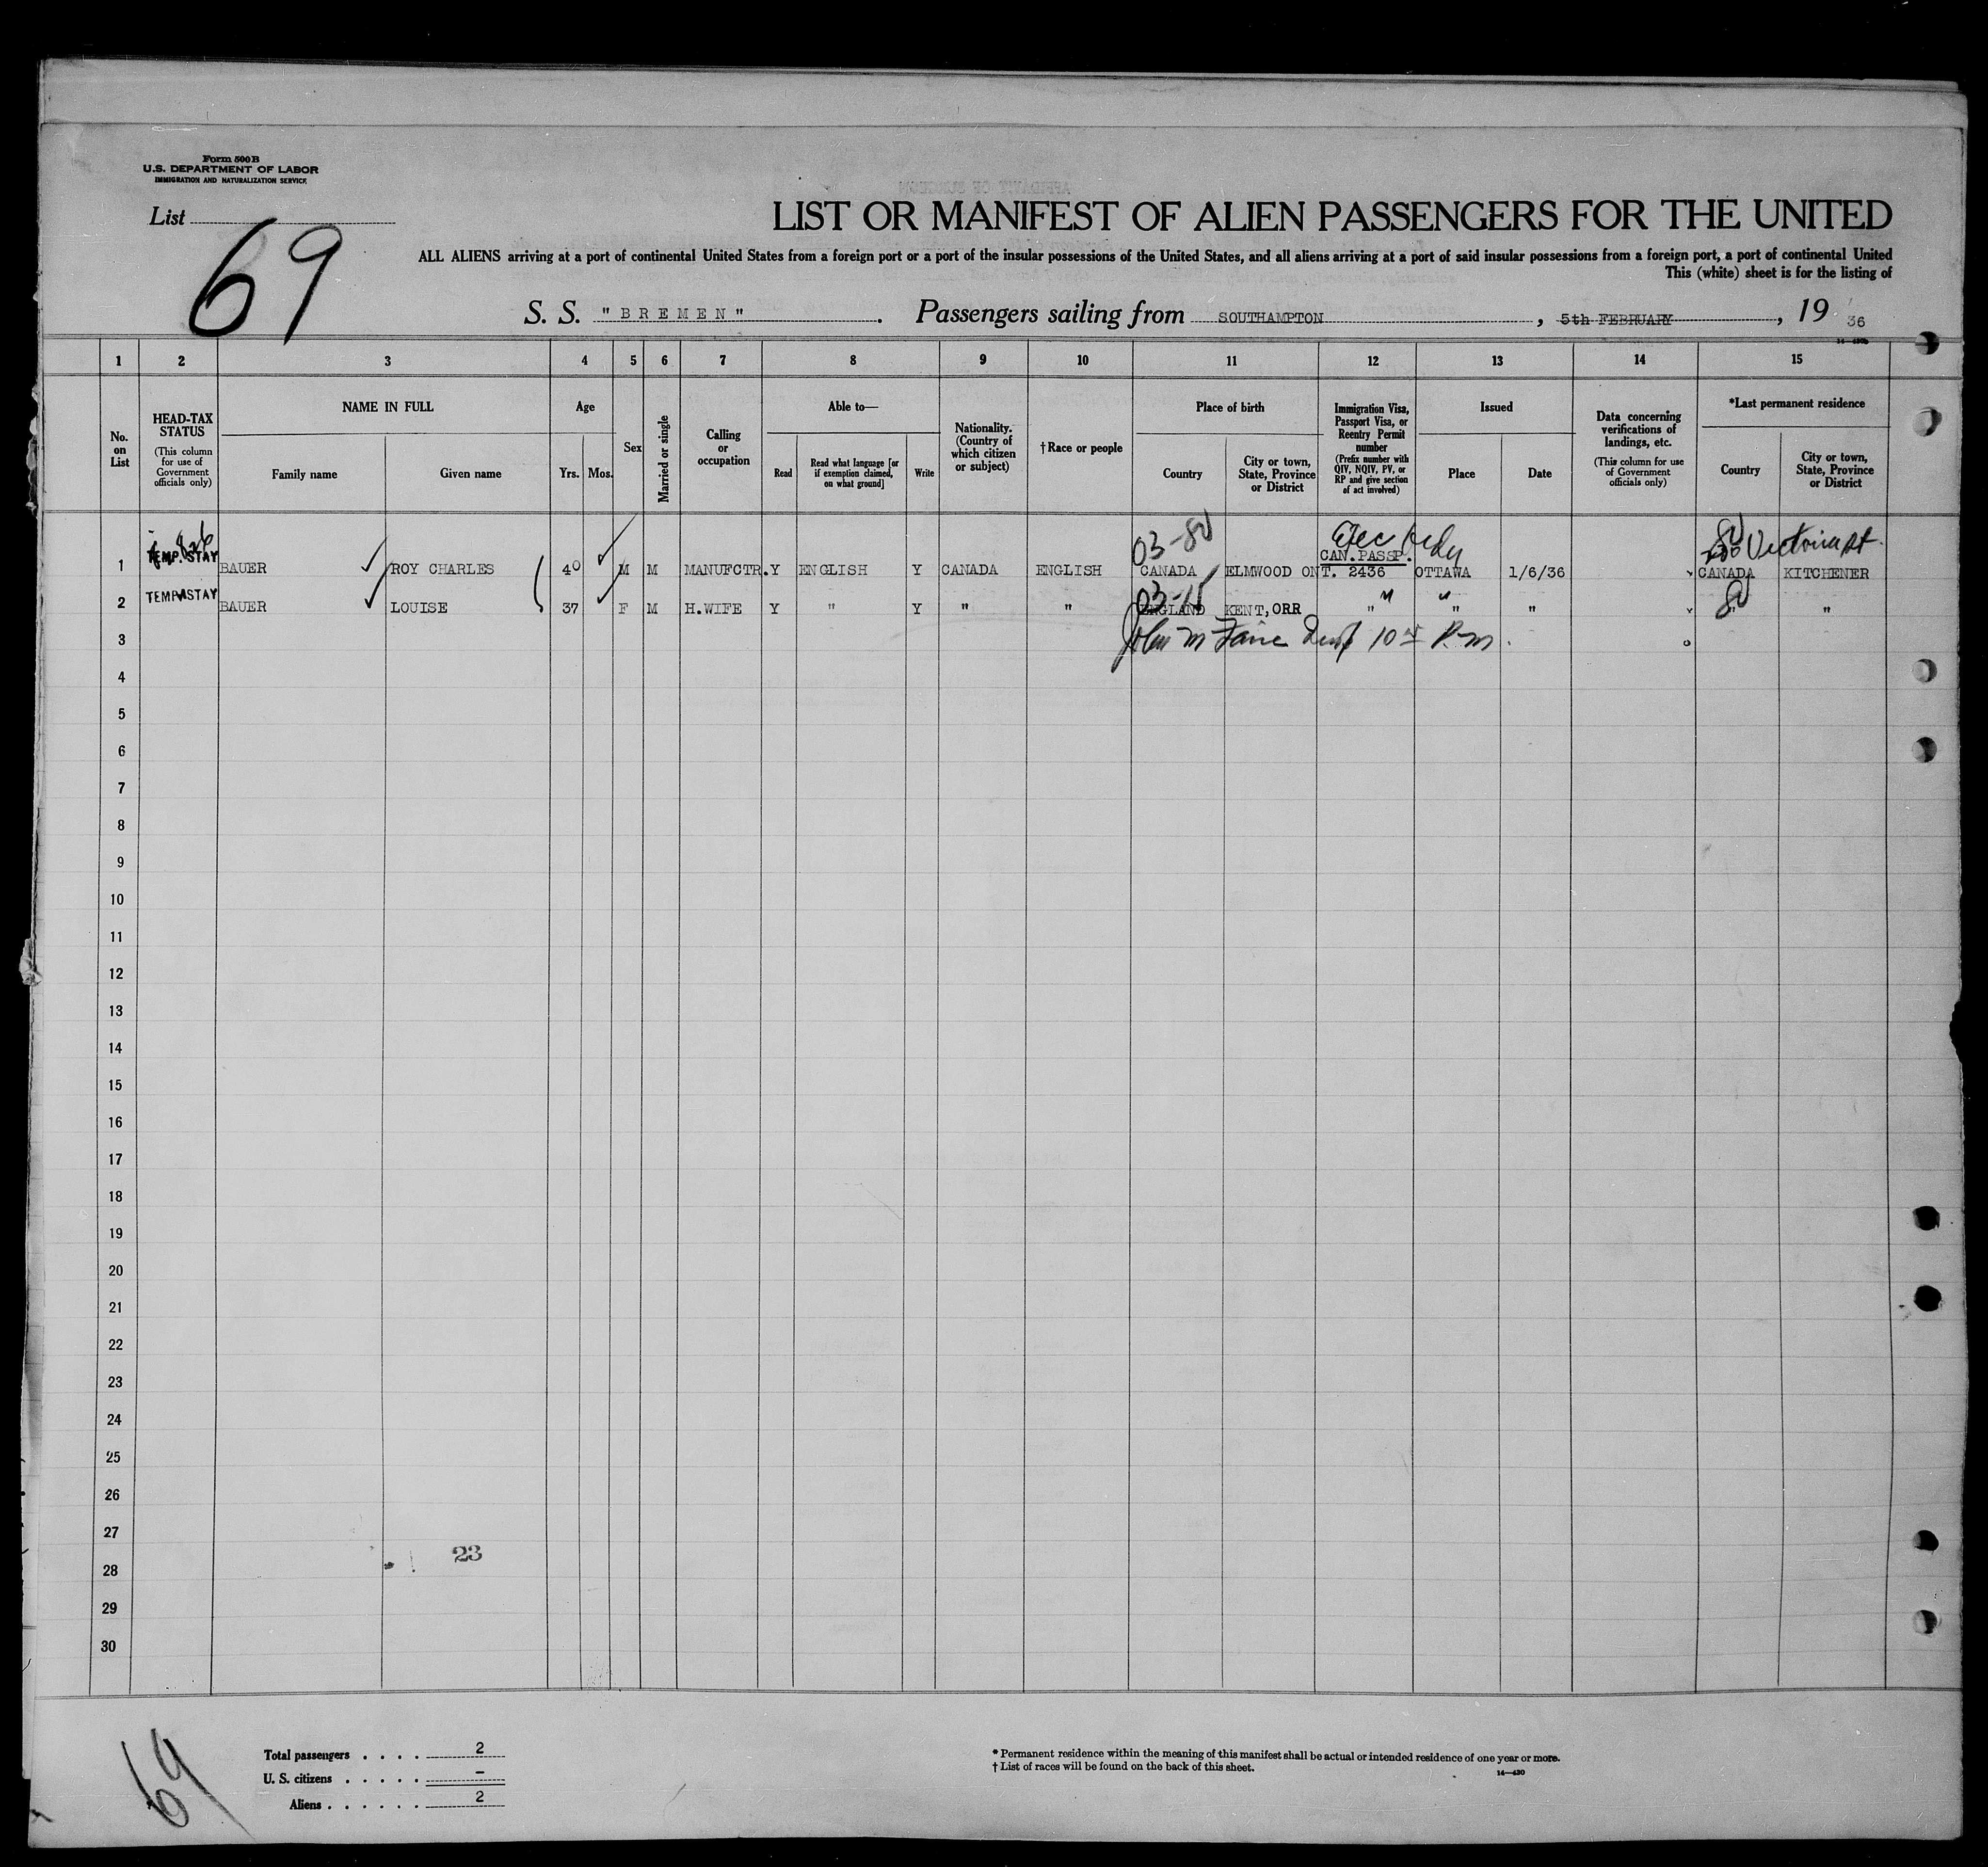 Form 500 B
U.S. DEPARTMENT OF LABOR
IMMIGRATION AND NATURALIZATION SERVICE
List
69
LIST OR MANIFEST OF ALIEN PASSENGERS FOR THE UNITED
ALL ALIENS arriving at a port of continental United States from a foreign port or a port of the insular possessions of the United States, and all aliens arriving at a port of said insular possessions from a foreign port, a port of continental United
This (white) sheet is for the listing of
S. S. "BREMEN". Passengers sailing from SOUTHAMPTON, 5th FEBRUARY, 19 36
1 2 3 4 5 6 7 8 9 10 11 12 13 14 15
No. on List
HEAD-TAX STATUS (This column for use of Government officials only)
NAME IN FULL
Family name
Given name
Age
Yrs. Mos.
Sex
Married or single
Calling or occupation
Able to—
Read
Read what language [or if exemption claimed, on what ground]
Write
Nationality. (Country of which citizen or subject)
†Race or people
Place of birth
Country
City or town, State, Province or District
Immigration Visa, Passport Visa, or Reentry Permit number (Prefix number with QIV, NQIV, PV, or RP and give section of act involved)
Issued
Place
Date
Data concerning verifications of landings, etc. (This column for use of Government officials only)
*Last permanent residence
Country
City or town, State, Province or District
03-80 CAN. PASSP. Victoria st.
1 TEMP. STAY BAUER ROY CHARLES 40 M M MANUFCTR. Y ENGLISH Y CANADA ENGLISH CANADA ELMWOOD ONT. 2436 OTTAWA 1/6/36 CANADA KITCHENER
03-15
2 TEMP. STAY BAUER LOUISE 37 F M H.WIFE Y " Y " " ENGLAND KENT, ORR " " " " "
3
4
5
6
7
8
9
10
11
12
13
14
15
16
17
18
19
20
21
22
23
24
25
26
27
23
28
29
30
69
Total passengers . . . . 2
U. S. citizens . . . . . –
Aliens . . . . . . 2
* Permanent residence within the meaning of this manifest shall be actual or intended residence of one year or more.
† List of races will be found on the back of this sheet.
14—430